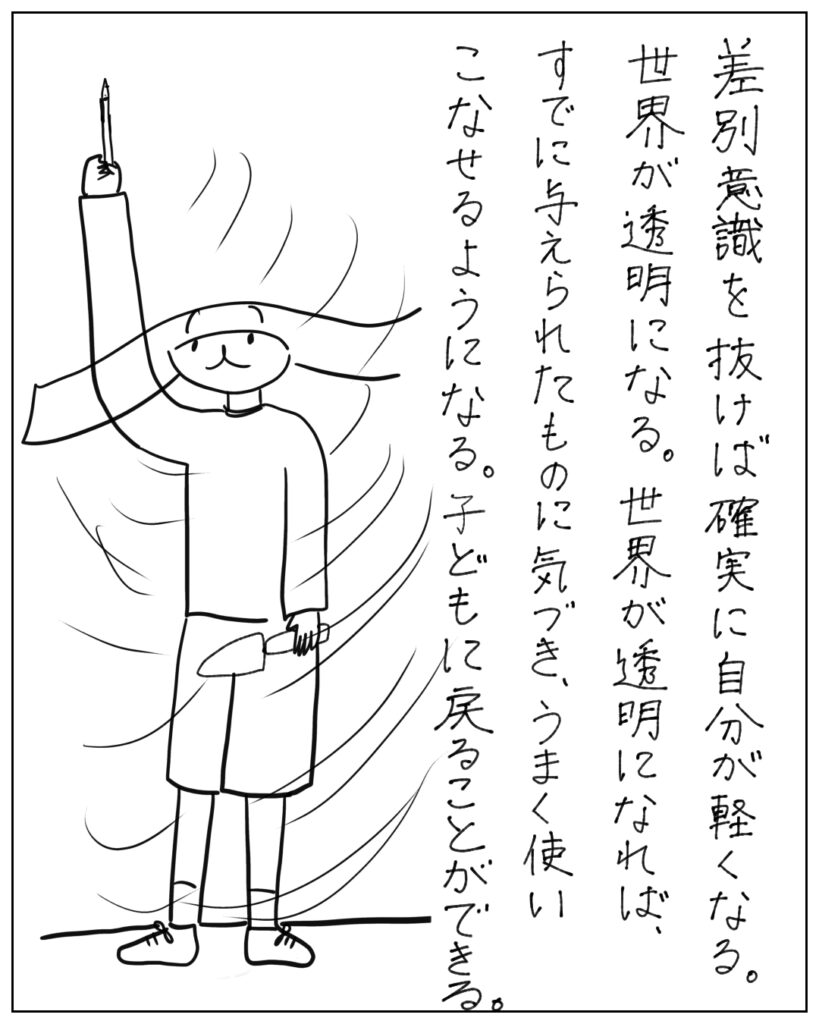 差別意識を抜けば確実に自分が軽くなる。
世界が透明になる。世界が透明になれば、
すでに与えられたものに気づき、うまく使い
こなせるようになる。子どもに戻ることができる。